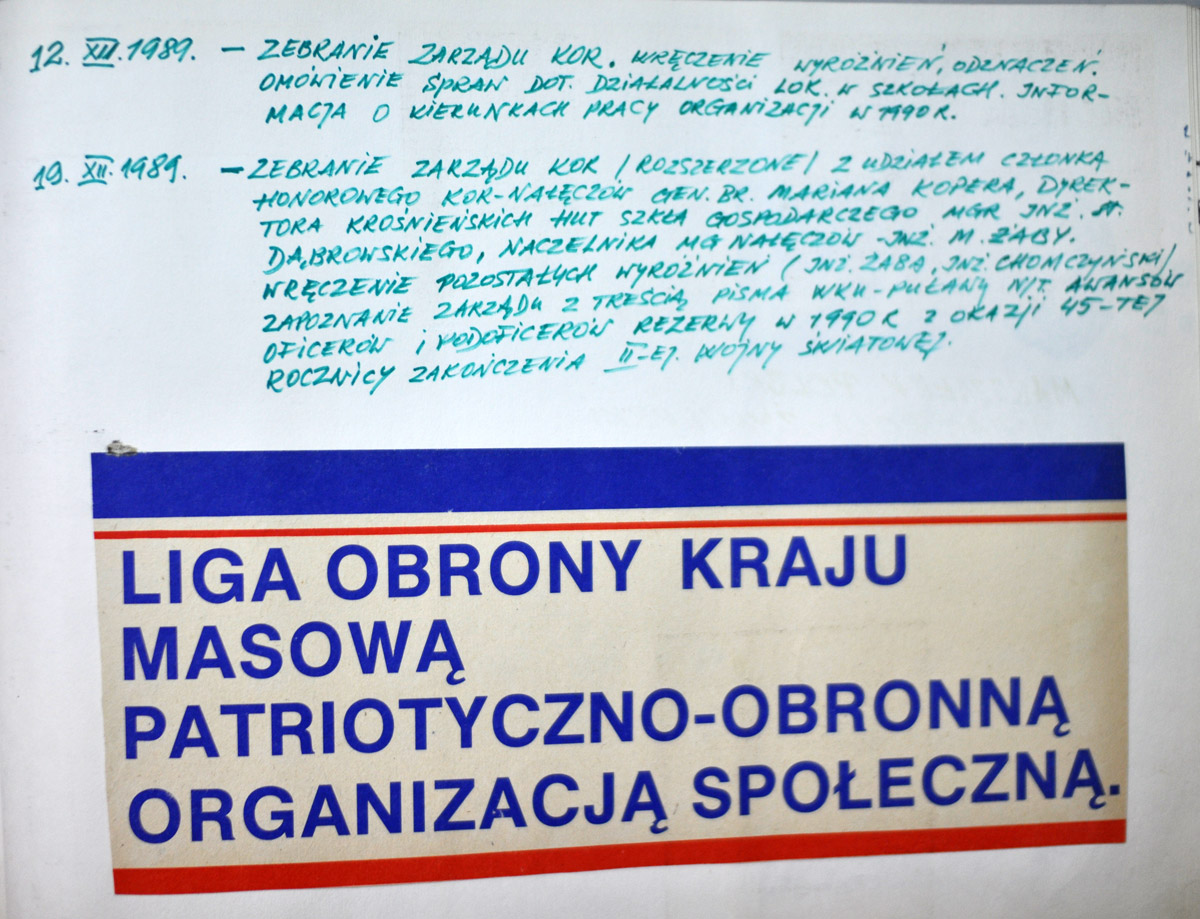 12. XII. 1989. – ZEBRANIE ZARZĄDU KOR. WRĘCZENIE WYRÓŻNIEŃ, ODZNACZEŃ.
OMÓWIENIE SPRAW DOT. DZIAŁALNOŚCI LOK. W SZKOŁACH. INFOR-
MACJA O KIERUNKACH PRACY ORGANIZACJI W 1990 R.
19. XII. 1989. – ZEBRANIE ZARZĄDU KOR /ROZSZERZONE/ Z UDZIAŁEM CZŁONKA
HONOROWEGO KOR-NAŁĘCZÓW GEN. BR. MARIANA KOPERA, DYREK-
TORA KROŚNIEŃSKICH HUT SZKŁA GOSPODARCZEGO MGR INŻ. ST.
DĄBROWSKIEGO, NACZELNIKA MG NAŁĘCZÓW -INŻ. M. ŻABY.
WRĘCZENIE POZOSTAŁYCH WYRÓŻNIEŃ (INŻ. ŻABA, INŻ. CHOMCZYŃSKI/
ZAPOZNANIE ZARZĄDU Z TREŚCIĄ PISMA WKU-PUŁAWY N/T. AWANSÓW
OFICERÓW I PODOFICERÓW REZERWY W 1990 R Z OKAZJI 45-TEJ
ROCZNICY ZAKOŃCZENIA II-EJ. WOJNY ŚWIATOWEJ.
LIGA OBRONY KRAJU
MASOWĄ
PATRIOTYCZNO-OBRONNĄ
ORGANIZACJĄ SPOŁECZNĄ.